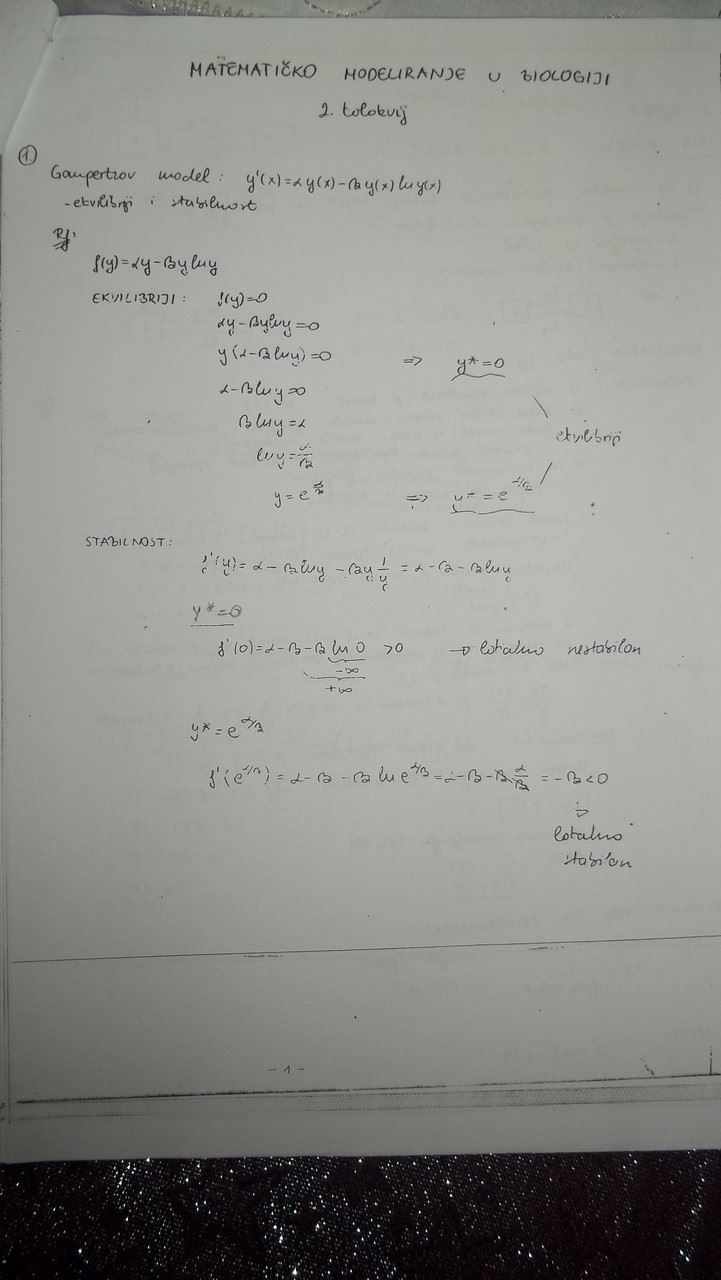 MATEMATIČKO MODELIRANJE U BIOLOGIJI
2. kolokvij
①
Gompertzov model: y'(x)=αy(x)-βy(x) ln y(x)
-ekvilibriji i stabilnost
Rj:
f(y)=αy-βy ln y
EKVILIBRIJI: f(y)=0
αy-βy ln y=0
y(α-β ln y)=0 => y*=0
α-β ln y=0
β ln y=α
ekvilibriji
ln y=α/β
y=e^(α/β) => y*=e^(α/β)
STABILNOST:
f'(y)=α-β ln y-βy 1/y=α-β-β ln y
y*=0
f'(0)=α-β-β ln 0 >0 → lokalno nestabilan
-∞
+∞
y*=e^(α/β)
f'(e^(α/β))=α-β-β ln e^(α/β)=α-β-β α/β=-β<0
⇒
lokalno
stabilan
-1-